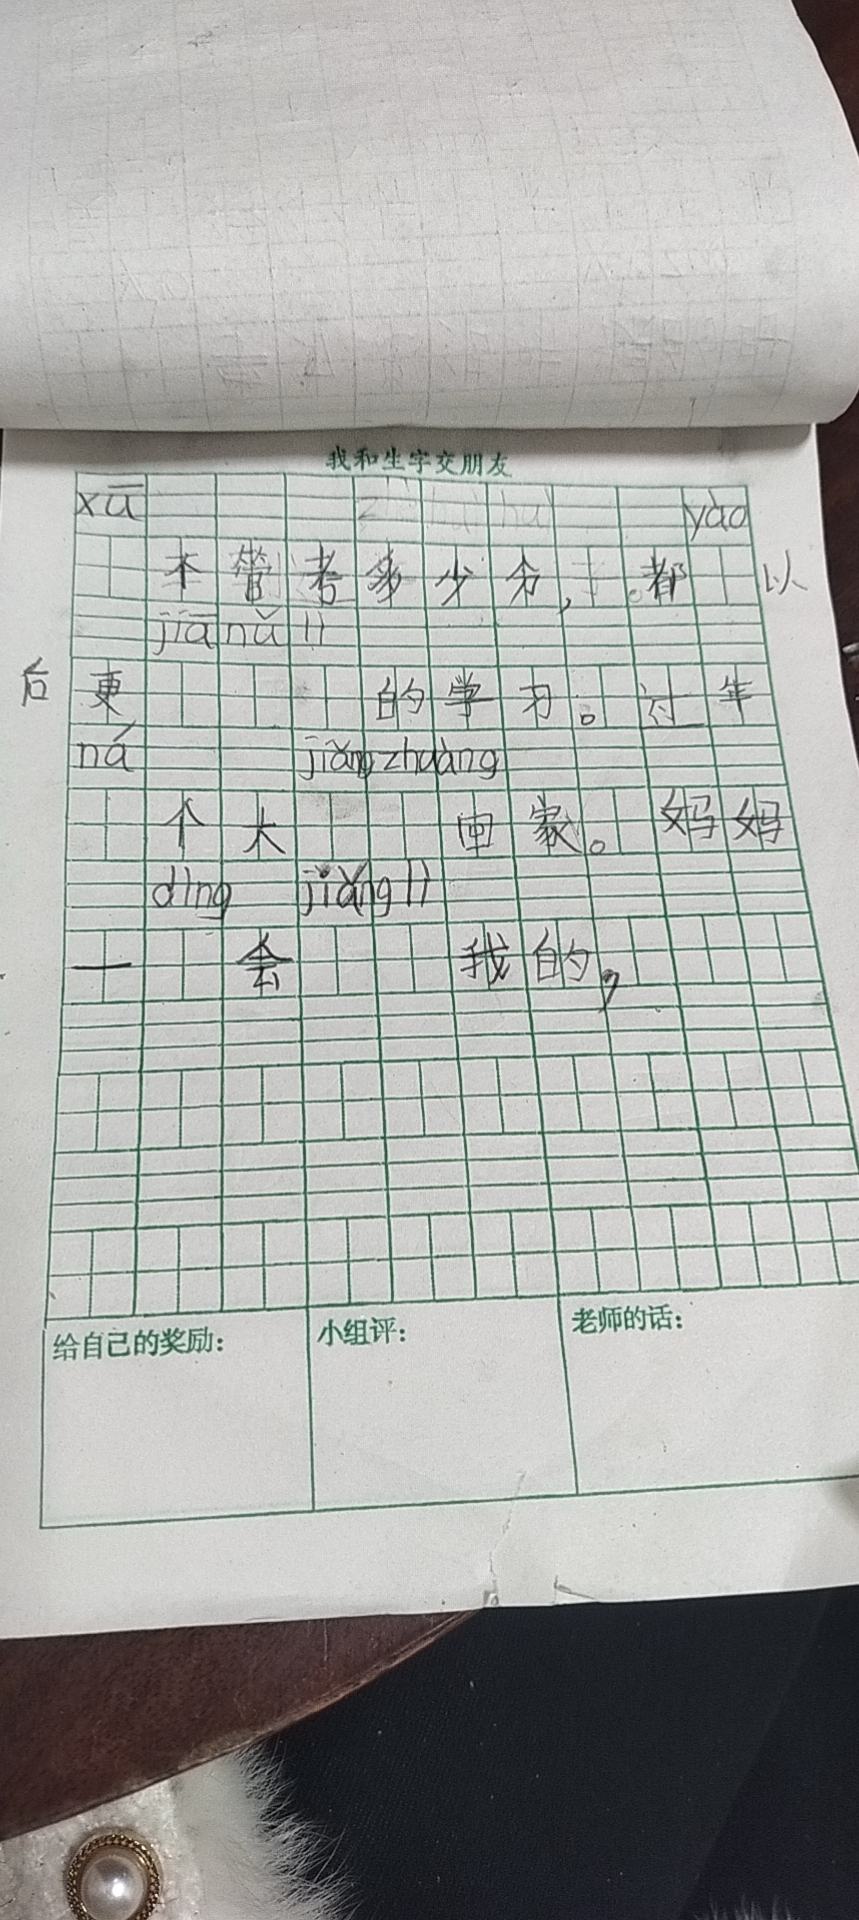 我和生字交朋友
xū yào
不管考多少分，都 以
jiā nǔ lì
后更 的学习。过年
ná jiǎng zhuàng
个大 回家。妈妈
dìng jiǎng lì
一 会 我的，
给自己的奖励：
小组评：
老师的话：